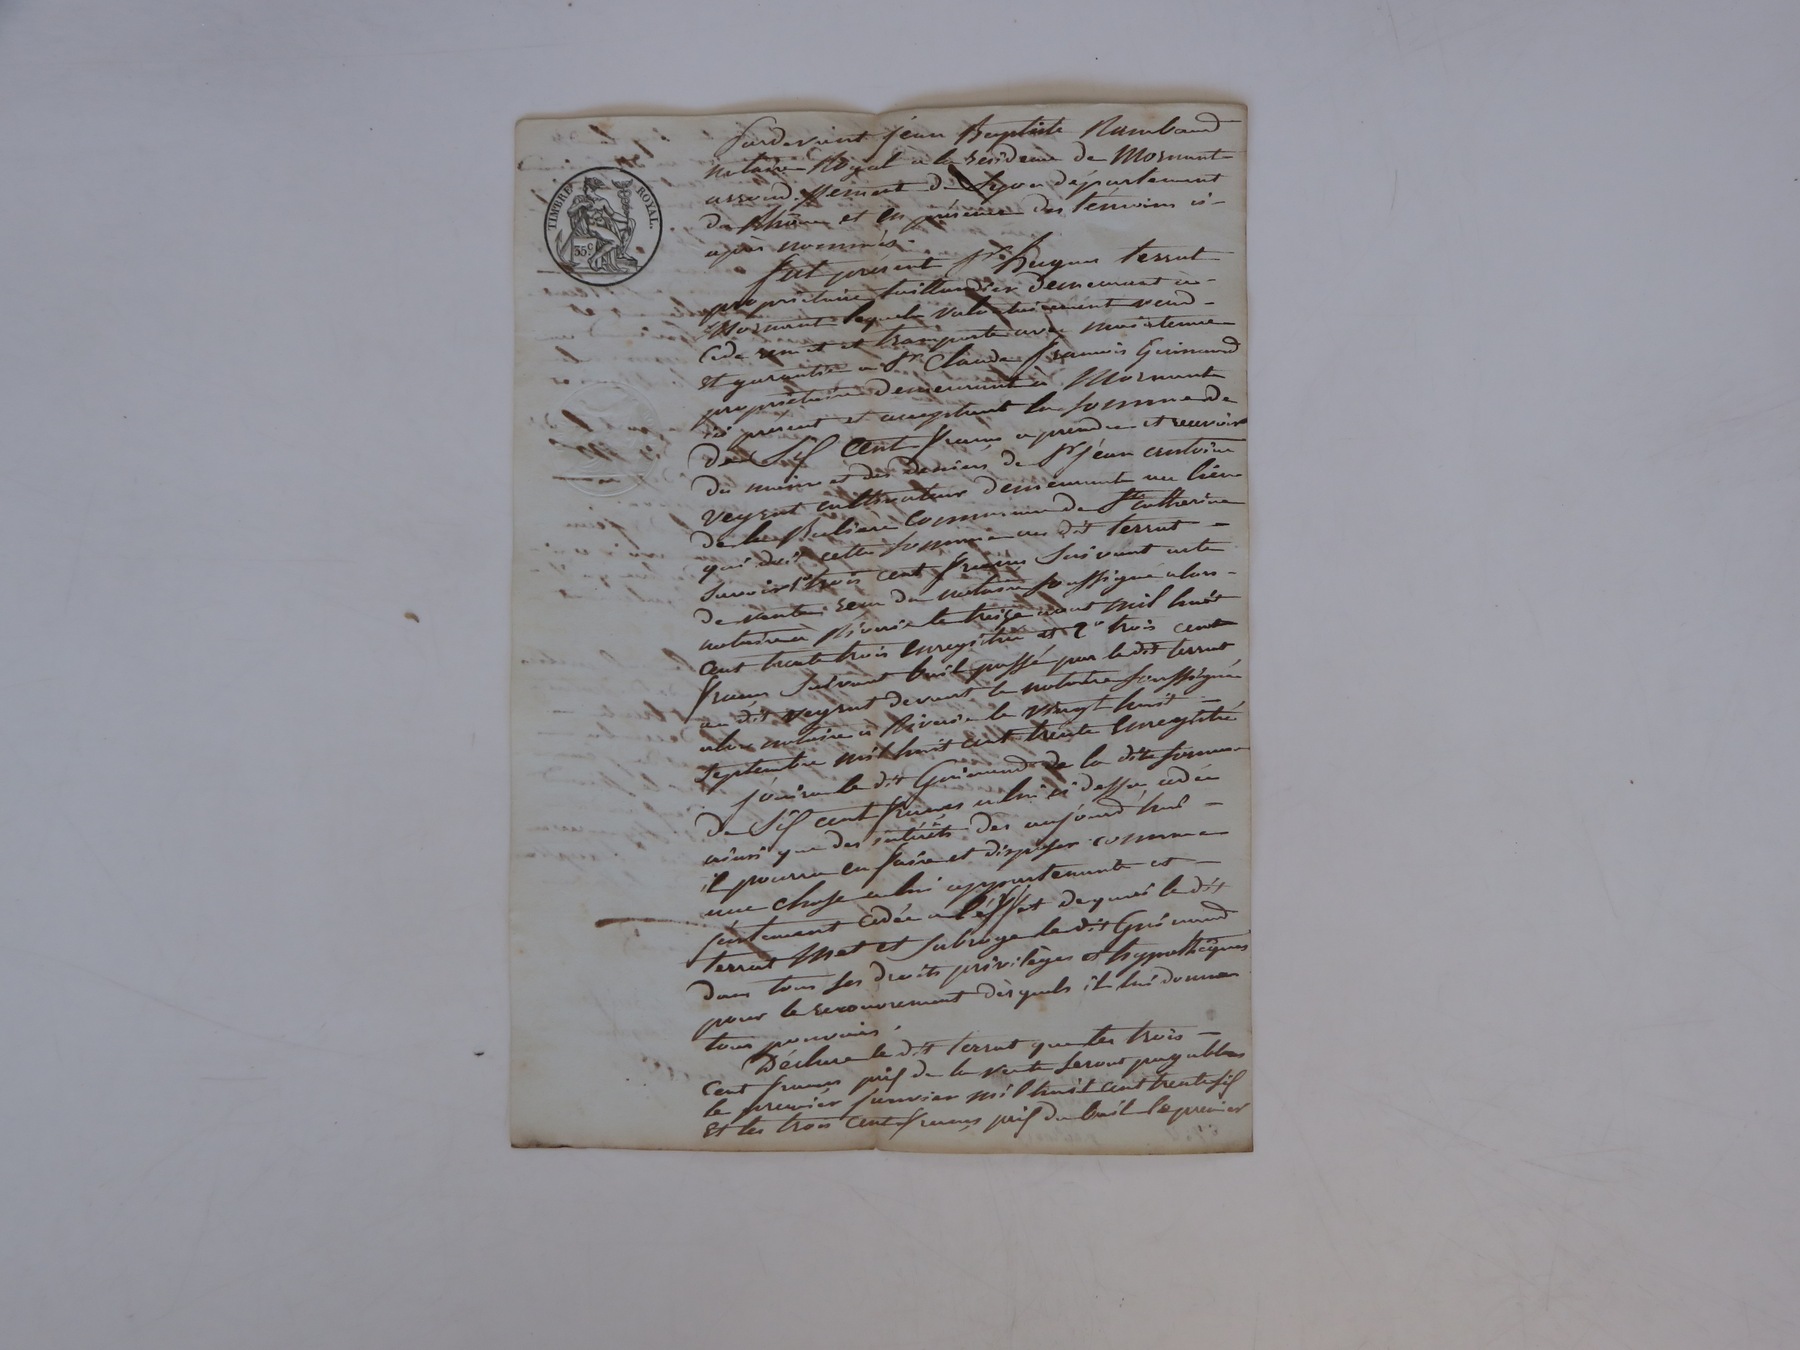 TIMBRE ROYAL.
35 c
Pardevant jean Baptiste Rambaud
notaire Royal a la residence de Mornant
arrondissement de Lyon département
du Rhône et en présence des temoins ci-
après nommés.
fut présent Sr terrat
propriétaire taillandier demeurant a
Mornant lequel volontairement vend
Cede remet et transporte avec maintenue
et garantie a Sr Claude francois Guimand
propriétaire demeurant à Mornant
ici présent et acceptant la somme de
de Six Cent francs a prendre et recevoir
du mains et des deniers de Sr jean antoine
veyrat cultivateur demeurant au lieu
de la commune de Ste Catherine
qui doit cette somme au dit terrat
Savoir 1° trois cent francs Suivant acte
de vente recu du notaire soussigné alors
notaire a Riverie le treize aout mil huit
cent trente trois enregistré et 2° trois cent
francs Suivant bail passé par le dit terrat
au dit veyrat devant le notaire soussigné
alors notaire à Riverie le vingt huit
septembre mil huit cent trente enregistré
jouira le dit Guimand de la dite somme
de Six cent francs a lui ci dessus cédée
ainsi que des intérêts des aujourd'hui
il pourra en faire et disposer comme
une chose a lui appartenante et
cédée a l'effet de quoi le dit
terrat Met et subroge le dit Guimand
dans tous ses droits privilèges et hypothèques
pour le recouvrement desquels il lui donne
tous pouvoirs.
Déclare le dit terrat que les trois
cent francs prix de la vente seront payables
le premier janvier mil huit cent trente six
et les trois cent francs prix du bail le premier